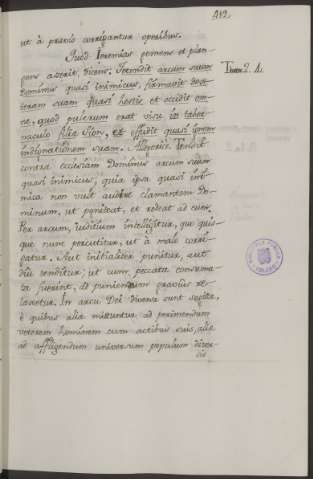 212.
ut à pravis corrigantur operibus.
Quod Ieremias gemens et plan-
gens asserit, dicens: Tetendit arcum suum
Dominus quasi inimicus, firmavit dex-
teram suam quasi hostis et occidit om-
ne, quod pulcrum erat visu in taber-
naculo filiæ Sion, et effudit quasi ignem
indignationem suam.
Thren. 2. 4.
contra ecclesiam Dominus arcum suum
quasi inimicus, quia ipsa quasi inimica
non vult audire clamantem Do-
minum, ut pœniteat, et redeat ad eum.
Per arcum, iuditium intelligitur, quo quis-
que nunc percutitur, ut à malo corri-
gatur. Aut initialiter punitur, aut
diu tenditur, ut cum peccata consuma-
ta fuerint, ad puniendum gravius re-
servetur. In arcu Dei diversæ sunt sagittæ,
è quibus aliæ mittuntur ad perimendum
veterem hominem cum actibus suis, aliæ
ad affligendum universum populum diver-
sis